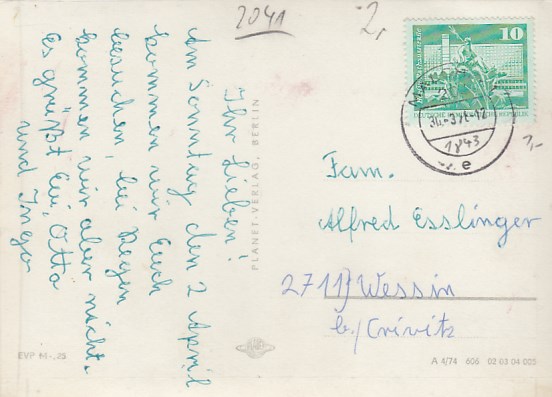 2041
2,
Ihr Lieben!
Am Sonntag, den 2 April
kommen wir Euch
besuchen, bei Regen
kommen wir aber nicht.
Es grüßt Eui, Otto
und Inge
PLANET-VERLAG, BERLIN
EVP M -,25
10
DEUTSCHE DEMOKRATISCHE REPUBLIK
1843
e
3,-
Fam.
Alfred Esslinger
2711 Wessin
b./Crivitz
A 4/74 606 02 03 04 025